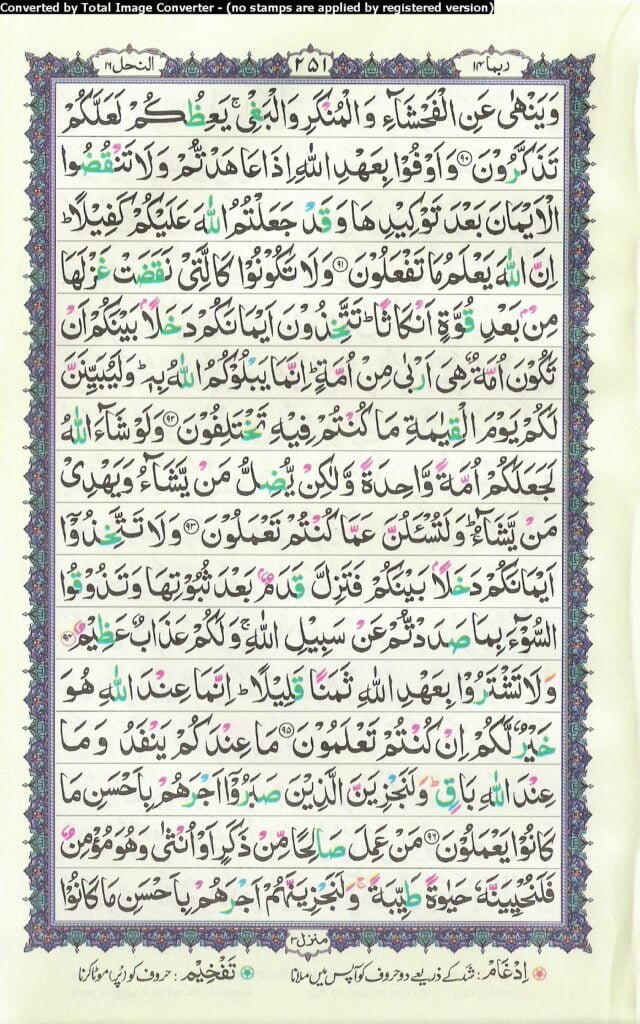 Converted by Total Image Converter - (no stamps are applied by registered version)
ربما ١٤
٢٥١
النحل ١٦
وَيَنْهٰى عَنِ الْفَحْشَآءِ وَالْمُنْكَرِ وَالْبَغْىِ ۚ يَعِظُكُمْ لَعَلَّكُمْ
تَذَكَّرُوْنَ ﴿۹۰﴾ وَاَوْفُوْا بِعَهْدِ اللّٰهِ اِذَا عَاهَدْتُّمْ وَلَا تَنْقُضُوا
الْاَيْمَانَ بَعْدَ تَوْكِيْدِهَا وَقَدْ جَعَلْتُمُ اللّٰهَ عَلَيْكُمْ كَفِيْلًا ؕ
اِنَّ اللّٰهَ يَعْلَمُ مَا تَفْعَلُوْنَ ﴿۹۱﴾ وَلَا تَكُوْنُوْا كَالَّتِىْ نَقَضَتْ غَزْلَهَا
مِنْۢ بَعْدِ قُوَّةٍ اَنْكَاثًا ؕ تَتَّخِذُوْنَ اَيْمَانَكُمْ دَخَلًاۢ بَيْنَكُمْ اَنْ
تَكُوْنَ اُمَّةٌ هِىَ اَرْبٰى مِنْ اُمَّةٍ ؕ اِنَّمَا يَبْلُوْكُمُ اللّٰهُ بِهٖ ؕ وَلَيُبَيِّنَنَّ
لَكُمْ يَوْمَ الْقِيٰمَةِ مَا كُنْتُمْ فِيْهِ تَخْتَلِفُوْنَ ﴿۹۲﴾ وَلَوْ شَآءَ اللّٰهُ
لَجَعَلَكُمْ اُمَّةً وَّاحِدَةً وَّلٰكِنْ يُّضِلُّ مَنْ يَّشَآءُ وَيَهْدِىْ
مَنْ يَّشَآءُ ؕ وَلَتُسْـَٔلُنَّ عَمَّا كُنْتُمْ تَعْمَلُوْنَ ﴿۹۳﴾ وَلَا تَتَّخِذُوْۤا
اَيْمَانَكُمْ دَخَلًاۢ بَيْنَكُمْ فَتَزِلَّ قَدَمٌۢ بَعْدَ ثُبُوْتِهَا وَتَذُوْقُوا
السُّوْٓءَ بِمَا صَدَدْتُّمْ عَنْ سَبِيْلِ اللّٰهِ ۚ وَلَكُمْ عَذَابٌ عَظِيْمٌ ﴿۹۴﴾
وَلَا تَشْتَرُوْا بِعَهْدِ اللّٰهِ ثَمَنًا قَلِيْلًا ؕ اِنَّمَا عِنْدَ اللّٰهِ هُوَ
خَيْرٌ لَّكُمْ اِنْ كُنْتُمْ تَعْلَمُوْنَ ﴿۹۵﴾ مَا عِنْدَكُمْ يَنْفَدُ وَمَا
عِنْدَ اللّٰهِ بَاقٍ ؕ وَلَنَجْزِيَنَّ الَّذِيْنَ صَبَرُوْۤا اَجْرَهُمْ بِاَحْسَنِ مَا
كَانُوْا يَعْمَلُوْنَ ﴿۹۶﴾ مَنْ عَمِلَ صَالِحًا مِّنْ ذَكَرٍ اَوْ اُنْثٰى وَهُوَ مُؤْمِنٌ
فَلَنُحْيِيَنَّهٗ حَيٰوةً طَيِّبَةً ۚ وَلَنَجْزِيَنَّهُمْ اَجْرَهُمْ بِاَحْسَنِ مَا كَانُوْا
منزل ٣
اِدْغَام : شد کے ذریعے دو حروف کو آپس میں ملانا
تَفْخِيْم : حروف کو (پُر) موٹا کرنا